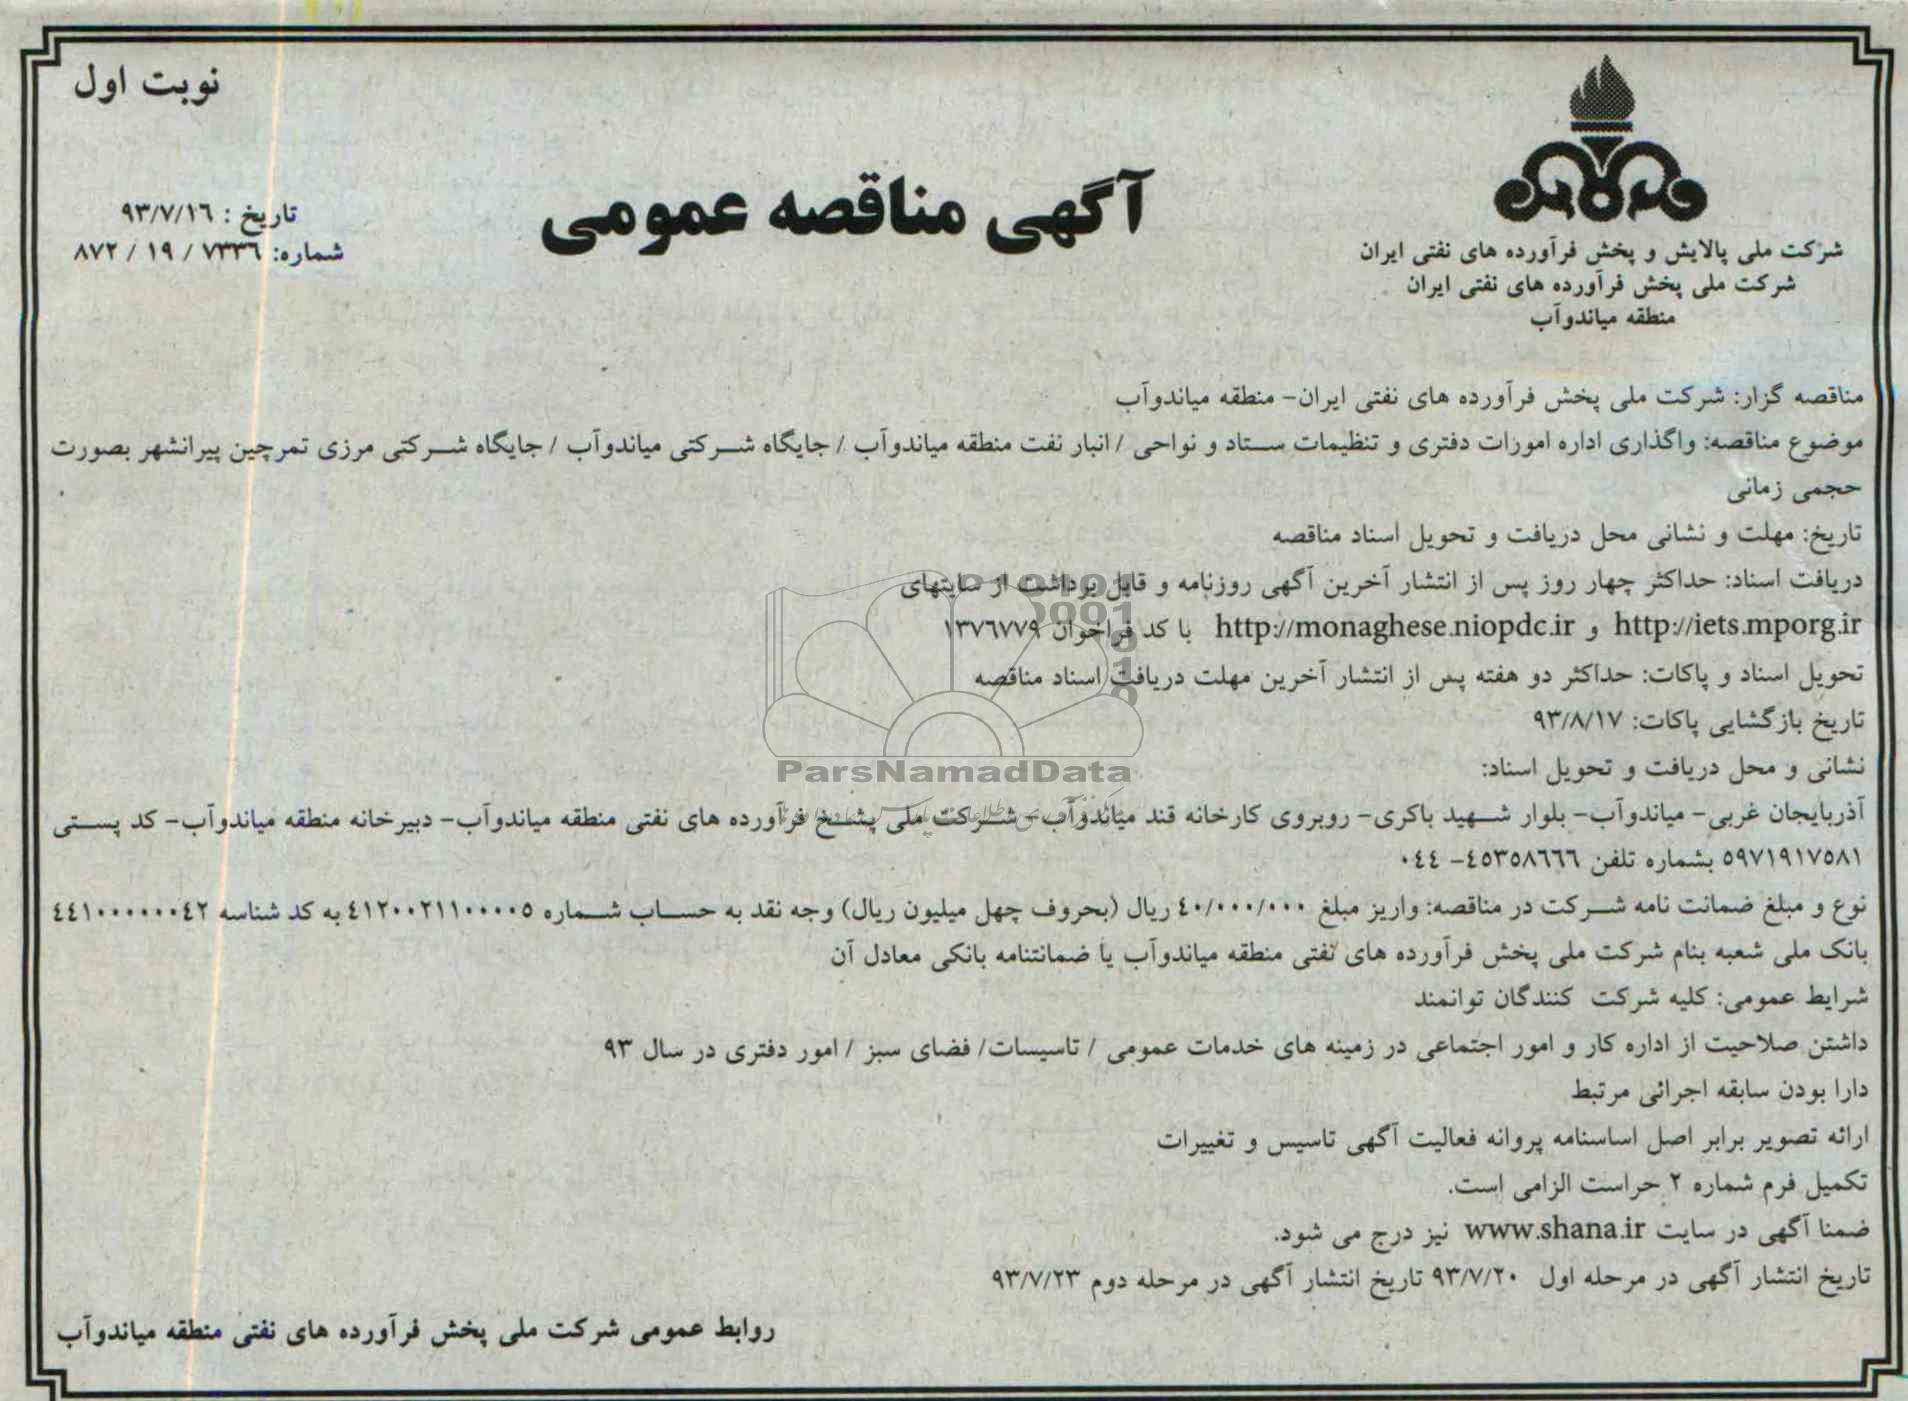 نوبت اول
شرکت ملی پالایش و پخش فرآورده های نفتی ایران
شرکت ملی پخش فرآورده های نفتی ایران
منطقه میاندوآب
آگهی مناقصه عمومی
تاریخ : ۹۳/۷/۱۶
شماره: ۷۳۳۶ / ۱۹ / ۸۷۲
مناقصه گزار: شرکت ملی پخش فرآورده های نفتی ایران- منطقه میاندوآب
موضوع مناقصه: واگذاری اداره امورات دفتری و تنظیمات ستاد و نواحی / انبار نفت منطقه میاندوآب / جایگاه شرکتی میاندوآب / جایگاه شرکتی مرزی تمرچین پیرانشهر بصورت
حجمی زمانی
تاریخ: مهلت و نشانی محل دریافت و تحویل اسناد مناقصه
دریافت اسناد: حداکثر چهار روز پس از انتشار آخرین آگهی روزنامه و قابل برداشت از سایتهای
http://iets.mporg.ir و http://monaghese.niopdc.ir با کد فراخوان ۱۳۷۶۷۷۹
تحویل اسناد و پاکات: حداکثر دو هفته پس از انتشار آخرین مهلت دریافت اسناد مناقصه
تاریخ بازگشایی پاکات: ۹۳/۸/۱۷
ParsNamadData
نشانی و محل دریافت و تحویل اسناد:
آذربایجان غربی- میاندوآب- بلوار شهید باکری- روبروی کارخانه قند میاندوآب- شرکت ملی پشخ فرآورده های نفتی منطقه میاندوآب- دبیرخانه منطقه میاندوآب- کد پستی
۵۹۷۱۹۱۷۵۸۱ بشماره تلفن ۴۵۳۵۸۶۶۶- ۰۴۴
نوع و مبلغ ضمانت نامه شرکت در مناقصه: واریز مبلغ ۴۰/۰۰۰/۰۰۰ ریال (بحروف چهل میلیون ریال) وجه نقد به حساب شماره ۴۱۲۰۰۲۱۱۰۰۰۰۵ به کد شناسه ۴۴۱۰۰۰۰۰۰۰۴۲
بانک ملی شعبه بنام شرکت ملی پخش فرآورده های نفتی منطقه میاندوآب یا ضمانتنامه بانکی معادل آن
شرایط عمومی: کلیه شرکت کنندگان توانمند
داشتن صلاحیت از اداره کار و امور اجتماعی در زمینه های خدمات عمومی / تاسیسات/ فضای سبز / امور دفتری در سال ۹۳
دارا بودن سابقه اجرائی مرتبط
ارائه تصویر برابر اصل اساسنامه پروانه فعالیت آگهی تاسیس و تغییرات
تکمیل فرم شماره ۲ حراست الزامی است.
ضمنا آگهی در سایت www.shana.ir نیز درج می شود.
تاریخ انتشار آگهی در مرحله اول ۹۳/۷/۲۰ تاریخ انتشار آگهی در مرحله دوم ۹۳/۷/۲۳
روابط عمومی شرکت ملی پخش فرآورده های نفتی منطقه میاندوآب